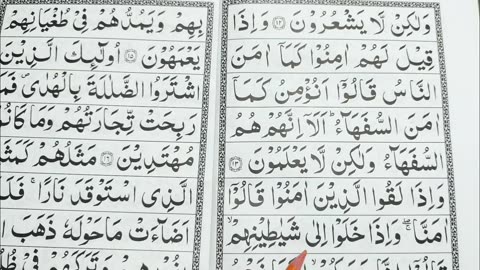 وَلٰكِنْ لَّا يَشْعُرُوْنَ ۝۱۲ وَاِذَا
قِيْلَ لَهُمْ اٰمِنُوْا كَمَاۤ اٰمَنَ
النَّاسُ قَالُوْۤا اَنُؤْمِنُ كَمَاۤ
اٰمَنَ السُّفَهَآءُ ؕ اَلَاۤ اِنَّهُمْ هُمُ
السُّفَهَآءُ وَلٰكِنْ لَّا يَعْلَمُوْنَ ۝۱۳
وَاِذَا لَقُوا الَّذِيْنَ اٰمَنُوْا قَالُوْۤا
اٰمَنَّا ۖۚ وَاِذَا خَلَوْا اِلٰى شَيٰطِيْنِهِمْ ۙ
بِهِمْ وَيَمُدُّهُمْ فِيْ طُغْيَانِهِمْ
يَعْمَهُوْنَ ۝۱۵ اُولٰٓئِكَ الَّذِيْنَ
اشْتَرَوُا الضَّلٰلَةَ بِالْهُدٰى ۪ فَمَا
رَبِحَتْ تِّجَارَتُهُمْ وَمَا كَانُوْ
مُهْتَدِيْنَ ۝۱۶ مَثَلُهُمْ كَمَثَ
الَّذِي اسْتَوْقَدَ نَارًا ۚ فَلَ
اَضَآءَتْ مَا حَوْلَهٗ ذَهَبَ ا